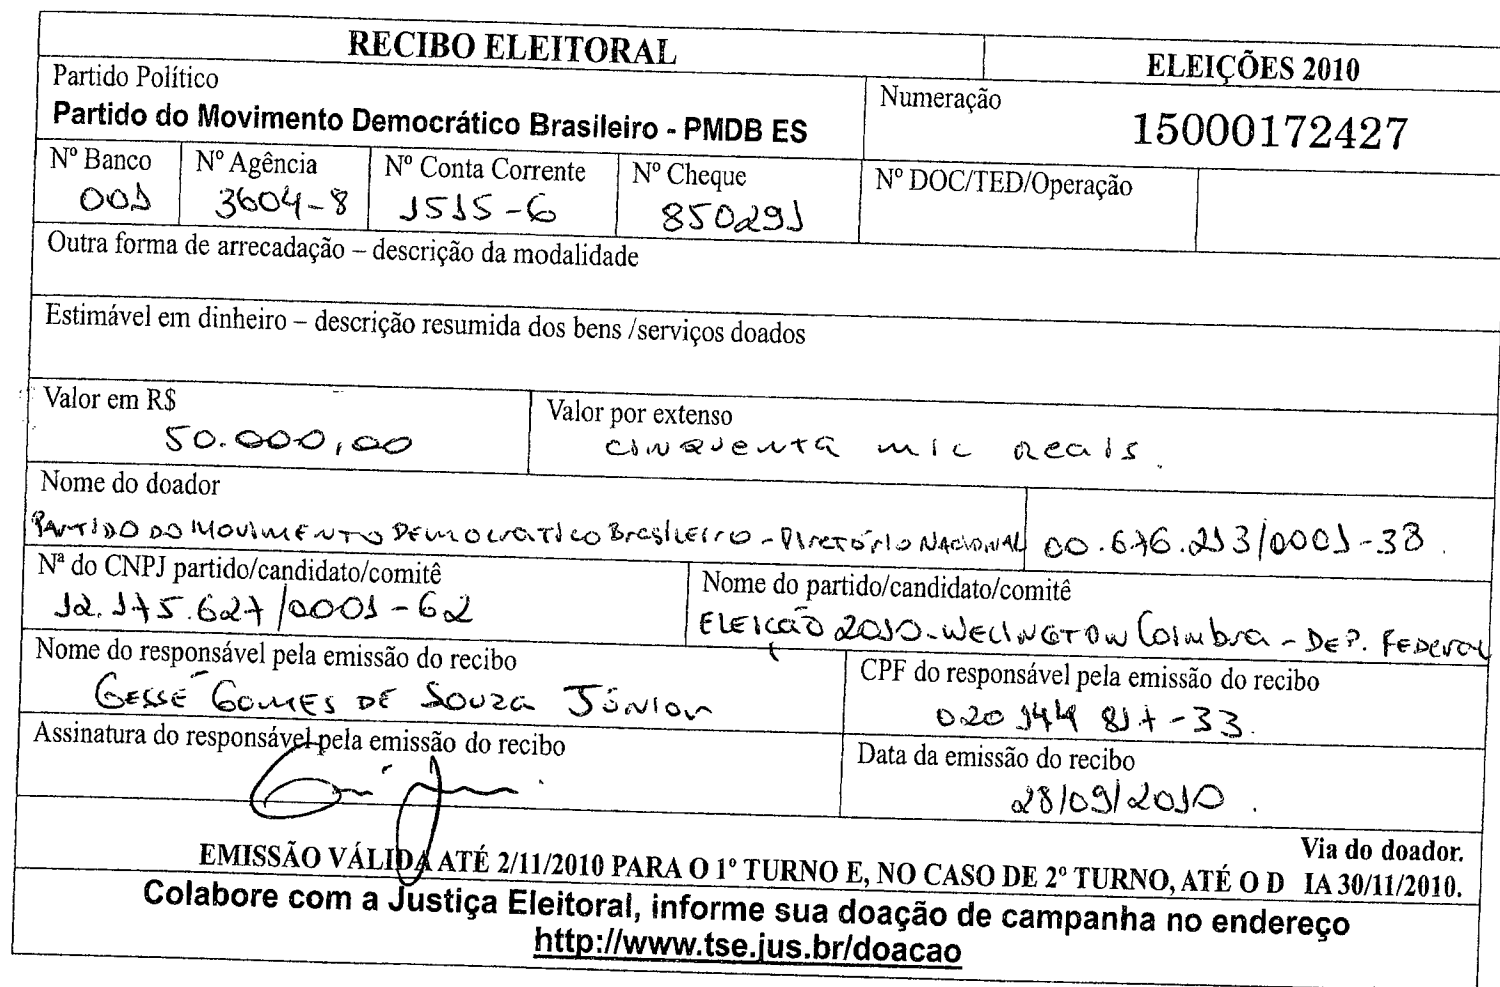 RECIBO ELEITORAL
ELEIÇÕES 2010
Partido Político
Partido do Movimento Democrático Brasileiro - PMDB ES
Numeração
15000172427
Nº Banco
001
Nº Agência
3604-8
Nº Conta Corrente
1515-6
Nº Cheque
850291
Nº DOC/TED/Operação
Outra forma de arrecadação – descrição da modalidade
Estimável em dinheiro – descrição resumida dos bens /serviços doados
Valor em R$
50.000,00
Valor por extenso
cinquenta mil reais.
Nome do doador
Partido do Movimento Democratico Brasileiro - Diretório Nacional
00.676.213/0001-38.
Nª do CNPJ partido/candidato/comitê
12.175.627/0001-62
Nome do partido/candidato/comitê
Eleição 2010-Welington Coimbra - Dep. Federal
Nome do responsável pela emissão do recibo
Gessé Gomes de Souza Júnior
CPF do responsável pela emissão do recibo
020 144 817-33.
Assinatura do responsável pela emissão do recibo
Data da emissão do recibo
28/09/2010.
Via do doador.
EMISSÃO VÁLIDA ATÉ 2/11/2010 PARA O 1º TURNO E, NO CASO DE 2º TURNO, ATÉ O D IA 30/11/2010.
Colabore com a Justiça Eleitoral, informe sua doação de campanha no endereço
http://www.tse.jus.br/doacao